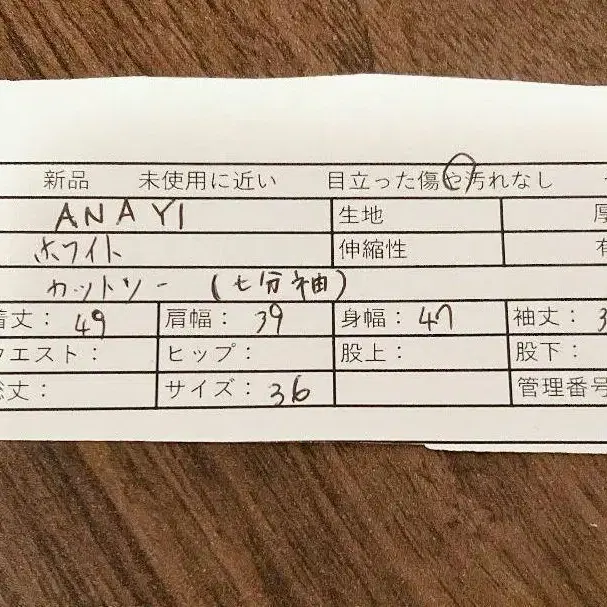 新品 未使用に近い 目立った傷や汚れなし
ANAYI 生地 厚
ホワイト 伸縮性 有
カットソー (七分袖)
着丈: 49 肩幅: 39 身幅: 47 袖丈: 3
ウエスト: ヒップ: 股上: 股下:
総丈: サイズ: 36 管理番号